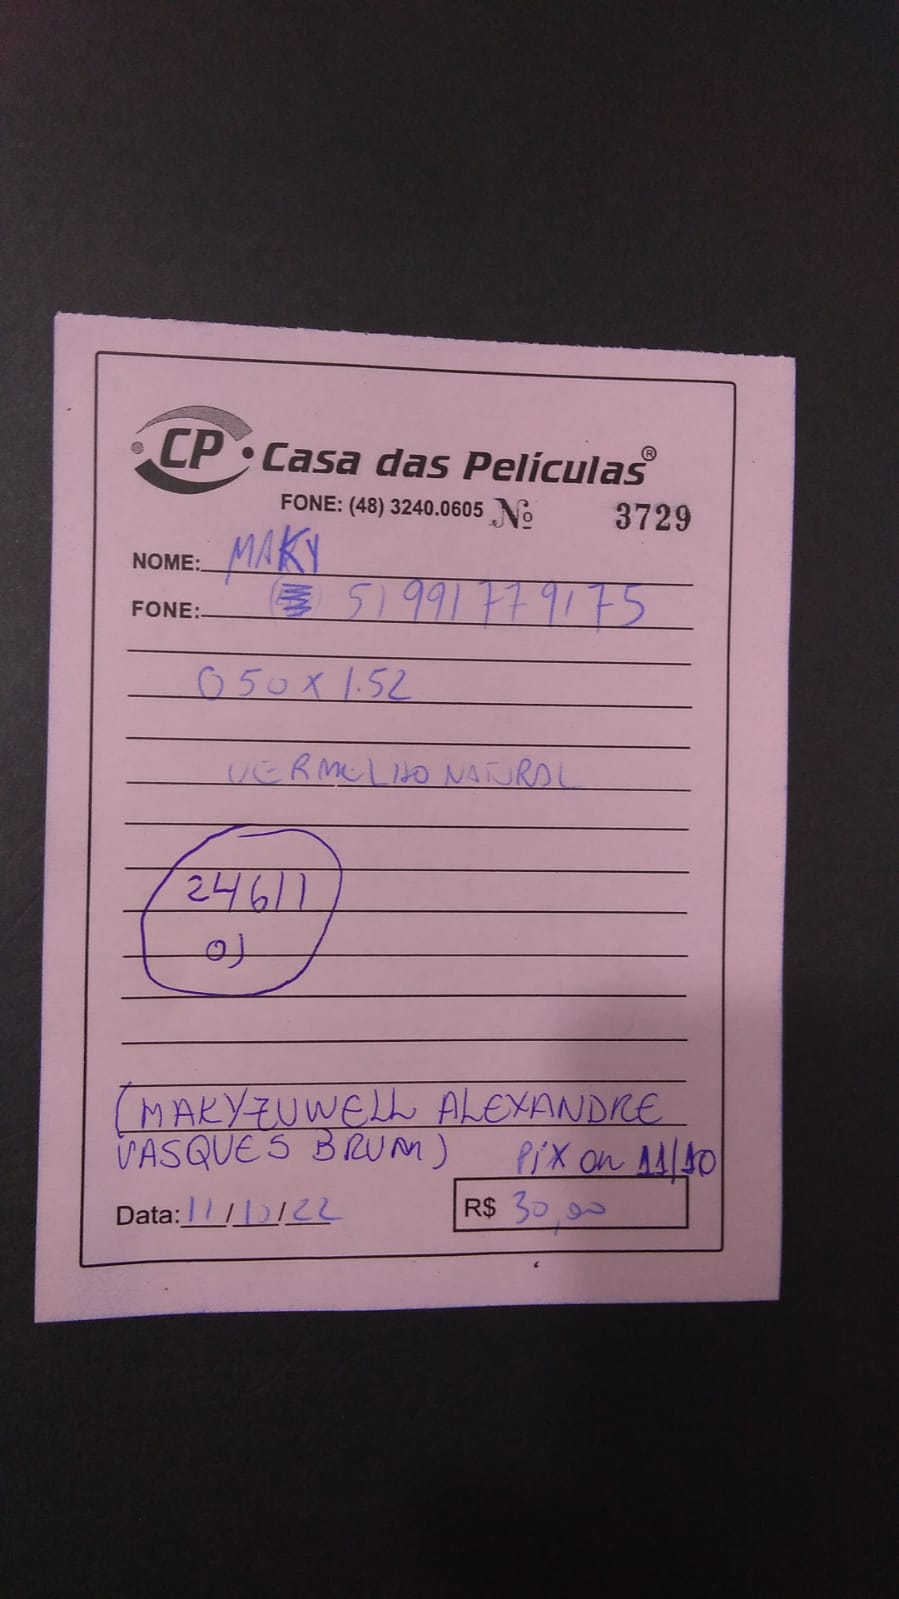 CP Casa das Películas®
FONE: (48) 3240.0605 Nº 3729
NOME: MAKY
FONE: 51991779175
0 50 x 1.52
VERMELHO NATURAL
24611
(MAKYZUWELL ALEXANDRE
VASQUES BRUM) PIX on 11/10
Data: 11/10/22 R$ 30,00